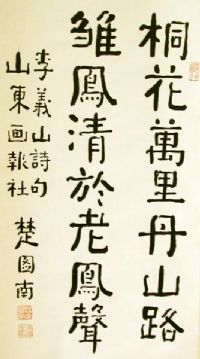 桐花萬里丹山路
雛鳳清於老鳳聲
李義山詩句
山東画報社
楚図南